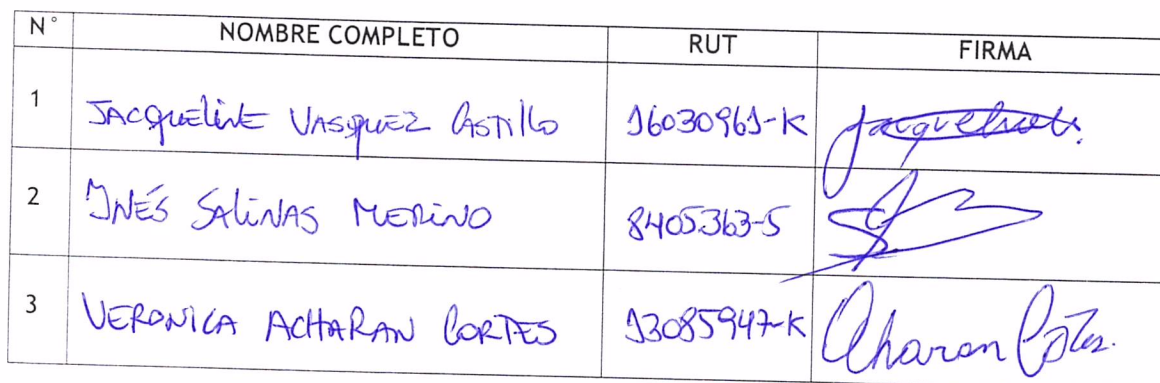 N° NOMBRE COMPLETO RUT FIRMA
1 JACQUELINE VASQUEZ CASTILLO 16030961-K
2 INÉS SALINAS MERINO 8405363-5
3 VERONICA ACHARAN CORTES 13085947-K